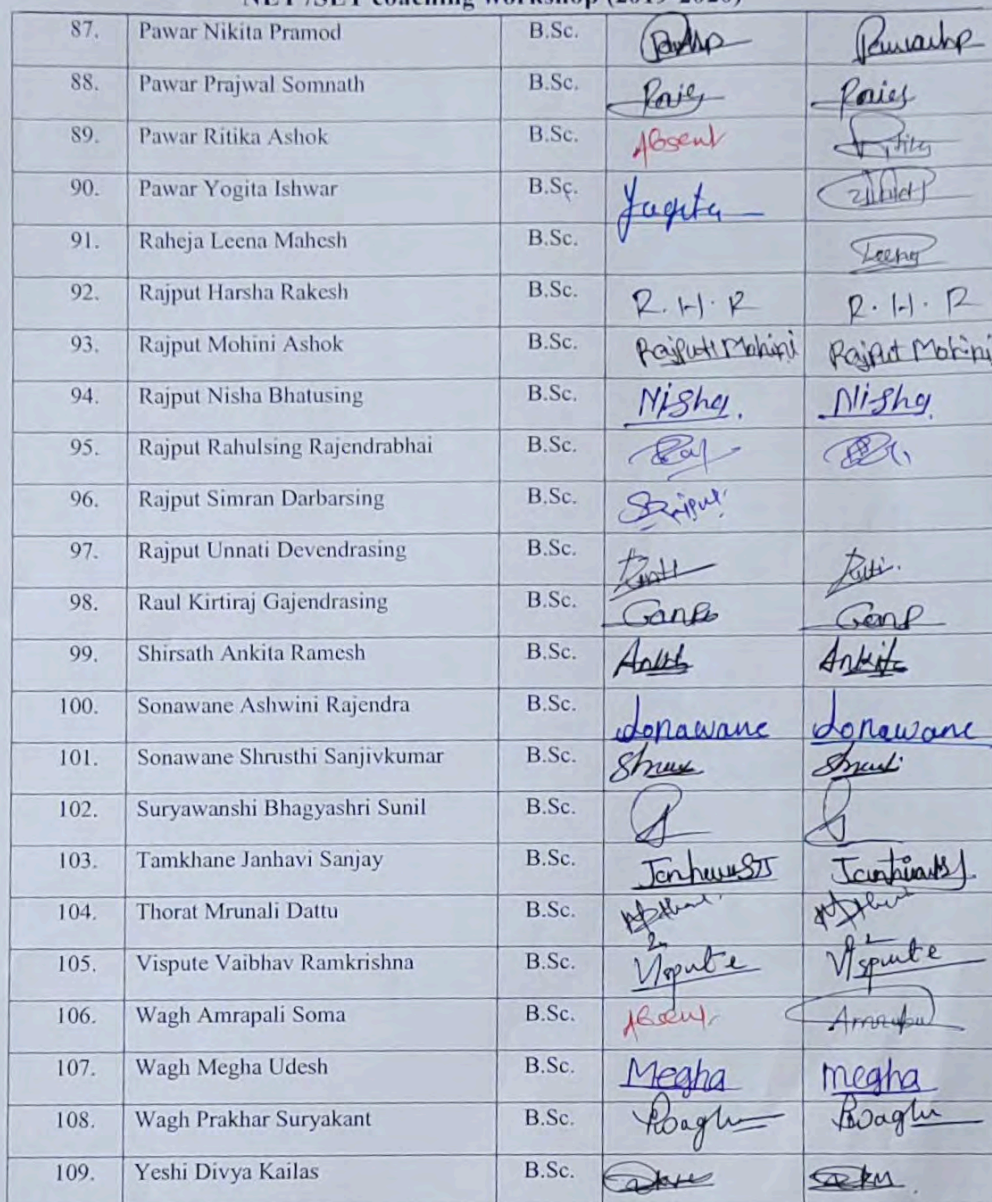 NET /SET coaching workshop (2019-2020)
87. Pawar Nikita Pramod B.Sc.
88. Pawar Prajwal Somnath B.Sc.
89. Pawar Ritika Ashok B.Sc. Absent
90. Pawar Yogita Ishwar B.Sc. Yogita
91. Raheja Leena Mahesh B.Sc. Leena
92. Rajput Harsha Rakesh B.Sc. R.H.R R.H.R
93. Rajput Mohini Ashok B.Sc. Rajput Mohini Rajput Mohini
94. Rajput Nisha Bhatusing B.Sc. Nisha. Nisha.
95. Rajput Rahulsing Rajendrabhai B.Sc.
96. Rajput Simran Darbarsing B.Sc. SRajput
97. Rajput Unnati Devendrasing B.Sc.
98. Raul Kirtiraj Gajendrasing B.Sc.
99. Shirsath Ankita Ramesh B.Sc. Ankita
100. Sonawane Ashwini Rajendra B.Sc. Sonawane Sonawane
101. Sonawane Shrusthi Sanjivkumar B.Sc.
102. Suryawanshi Bhagyashri Sunil B.Sc.
103. Tamkhane Janhavi Sanjay B.Sc.
104. Thorat Mrunali Dattu B.Sc.
105. Vispute Vaibhav Ramkrishna B.Sc. Vispute Vispute
106. Wagh Amrapali Soma B.Sc. Absent
107. Wagh Megha Udesh B.Sc. Megha megha
108. Wagh Prakhar Suryakant B.Sc.
109. Yeshi Divya Kailas B.Sc.